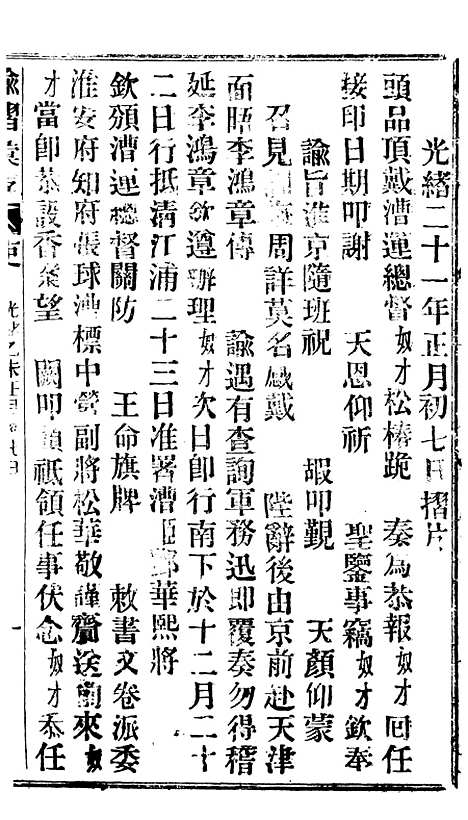 光緒二十一年正月初七日摺片
頭品頂戴漕運總督奴才松椿跪 奏為恭報回任
接印日期叩謝 天恩仰祈 聖鑒事竊奴才欽奉
諭旨進京隨班祝 嘏叩覲 天顏仰蒙
召見 周詳莫名感戴 陛辭後由京前赴天津
面晤李鴻章傳 諭遇有查詢軍務迅即覆奏勿得稽
延李鴻章欽遵辦理奴才次日即行南下於十二月二十
二日行抵清江浦二十三日准署漕臣鄧華熙將
欽頒漕運總督關防 王命旗牌 敕書文卷派委
淮安府知府張球漕標中營副將松華敬謹齎送前來奴
才當即恭設香案望 闕叩頭祗領任事伏念奴才忝任
諭摺彙存
一